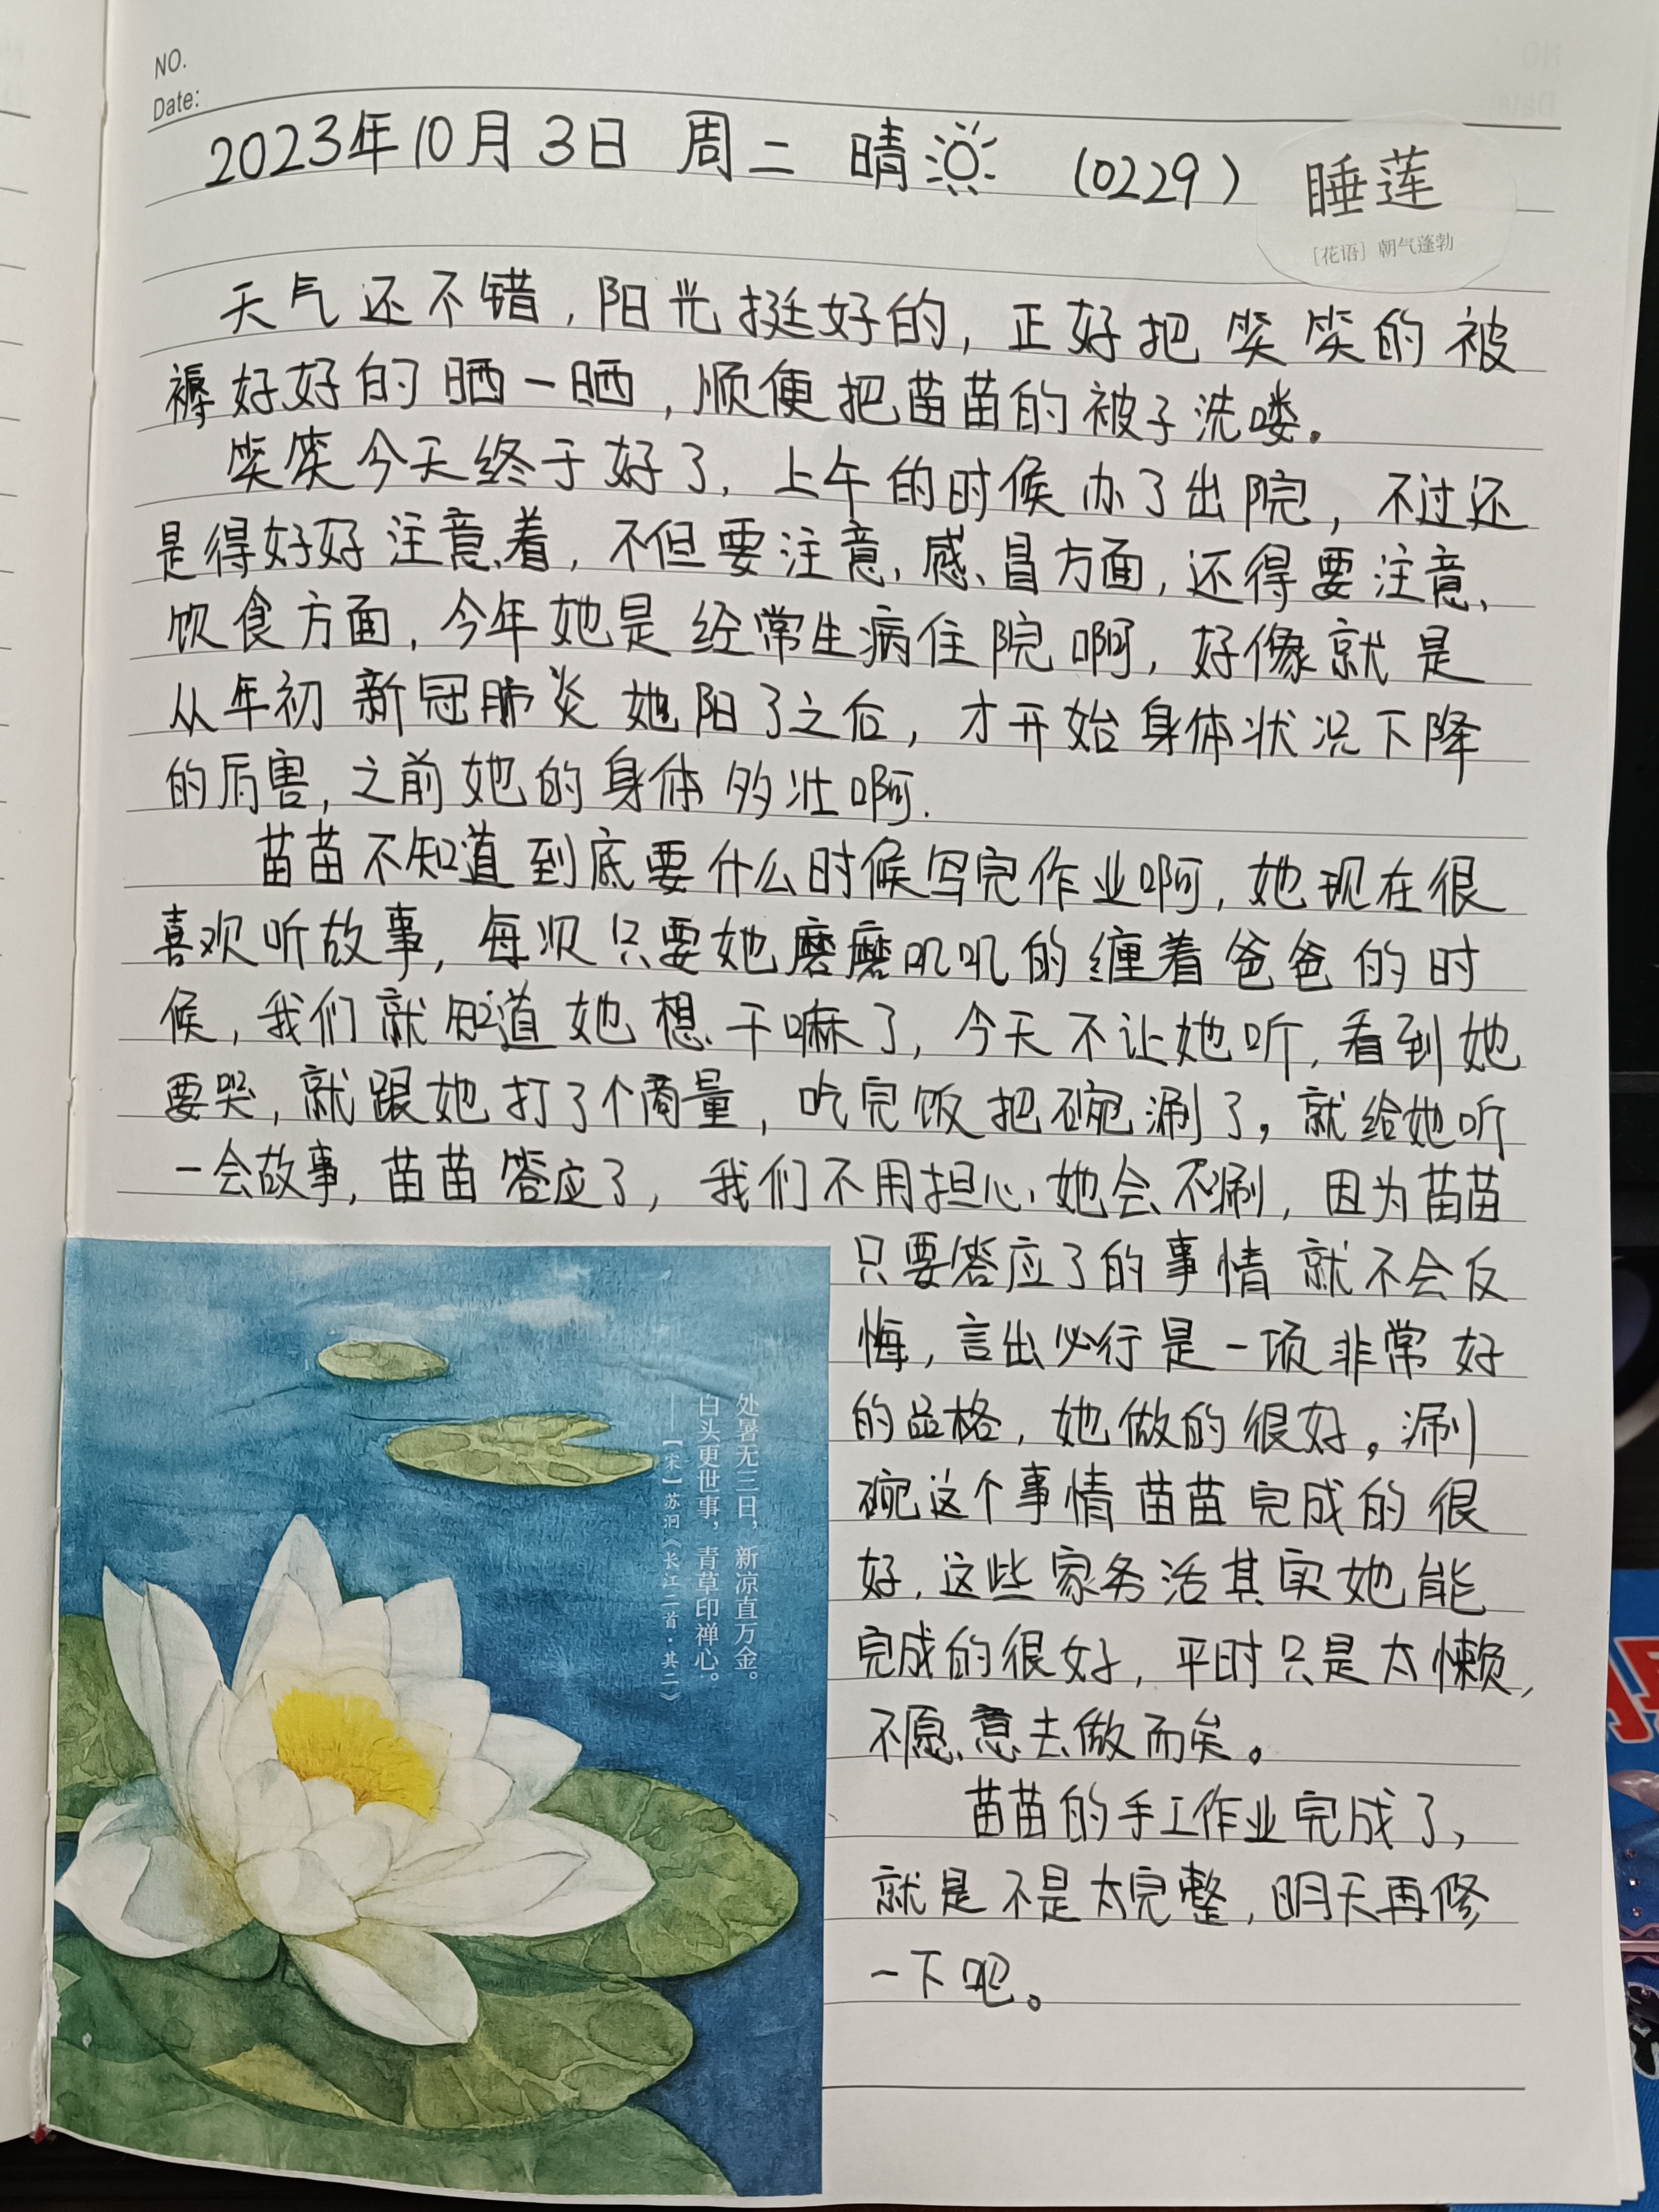 NO.
Date:
2023年10月3日 周二 晴 (0229)
睡莲
[花语] 朝气蓬勃
天气还不错,阳光挺好的,正好把笑笑的被
褥好好的晒一晒,顺便把苗苗的被子洗喽.
笑笑今天终于好了,上午的时候办了出院,不过还
是得好好注意着,不但要注意感冒方面,还得要注意
饮食方面,今年她是经常生病住院啊,好像就是
从年初新冠肺炎她阳了之后,才开始身体状况下降
的厉害,之前她的身体多壮啊.
苗苗不知道到底要什么时候写完作业啊,她现在很
喜欢听故事,每次只要她磨磨叽叽的缠着爸爸的时
候,我们就知道她想干嘛了,今天不让她听,看到她
要哭,就跟她打了个商量,吃完饭把碗涮了,就给她听
一会故事,苗苗答应了,我们不用担心她会不涮,因为苗苗
只要答应了的事情就不会反
悔,言出必行是一项非常好
的品格,她做的很好。涮
碗这个事情苗苗完成的很
好,这些家务活其实她能
完成的很好,平时只是太懒,
不愿意去做而矣。
苗苗的手工作业完成了,
就是不是太完整,明天再修
一下吧。
处暑无三日,新凉直万金。
白头更世事,青草印禅心。
——[宋]苏泂《长江二首·其二》